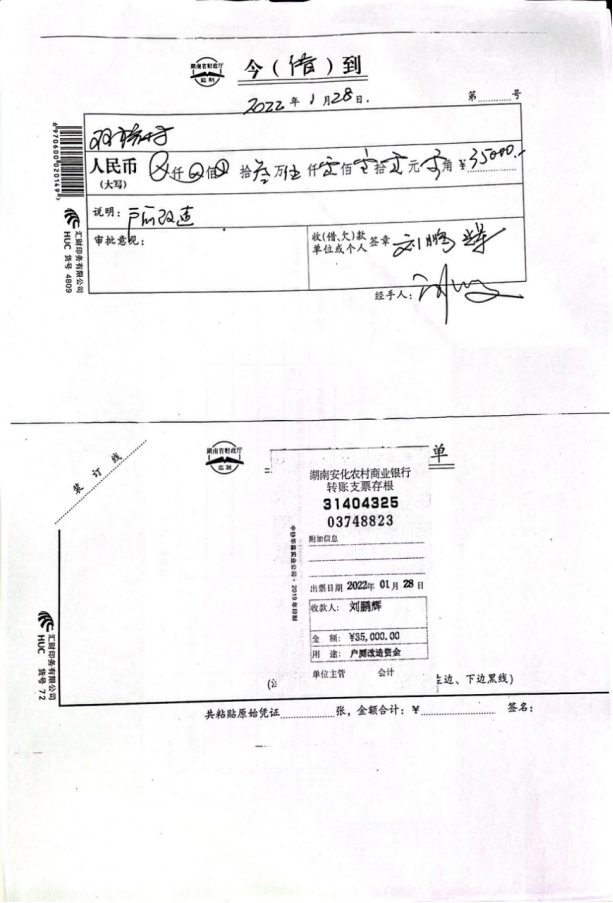 湖南省财政厅
监制
今(借)到
2022年1月28日.
第 号
人民币
(大写)
仟 佰 拾叁万伍仟零佰零拾零元零角¥35000.-
说明:户厕改造
审批意见:
收(借、欠)款
单位或个人 签章 刘鹏辉
经手人:
6970600020149
汇财印务有限公司
HUC 货号 4809
装订线
湖南省财政厅
监制
单
湖南安化农村商业银行
转账支票存根
31404325
03748823
附加信息
出票日期 2022年 01月 28日
收款人: 刘鹏辉
金 额: ¥35,000.00
用 途: 户厕改造资金
单位主管 会计
2019年印制
汇财印务有限公司
HUC 货号 72
左边、下边黑线)
共粘贴原始凭证 张,金额合计:¥ 签名: